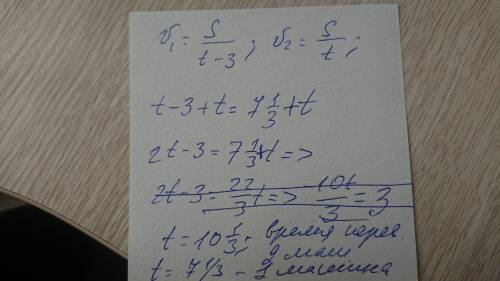 v₁ = S/(t-3); v₂ = S/t;
t-3+t = 7 1/3 + t
2t-3 = 7 1/3 + t =>
2t-3 = 22/3 t => 10t/3 = 3
t = 10 1/3 - время перв.
маш
t = 7 1/3 - 2 машина